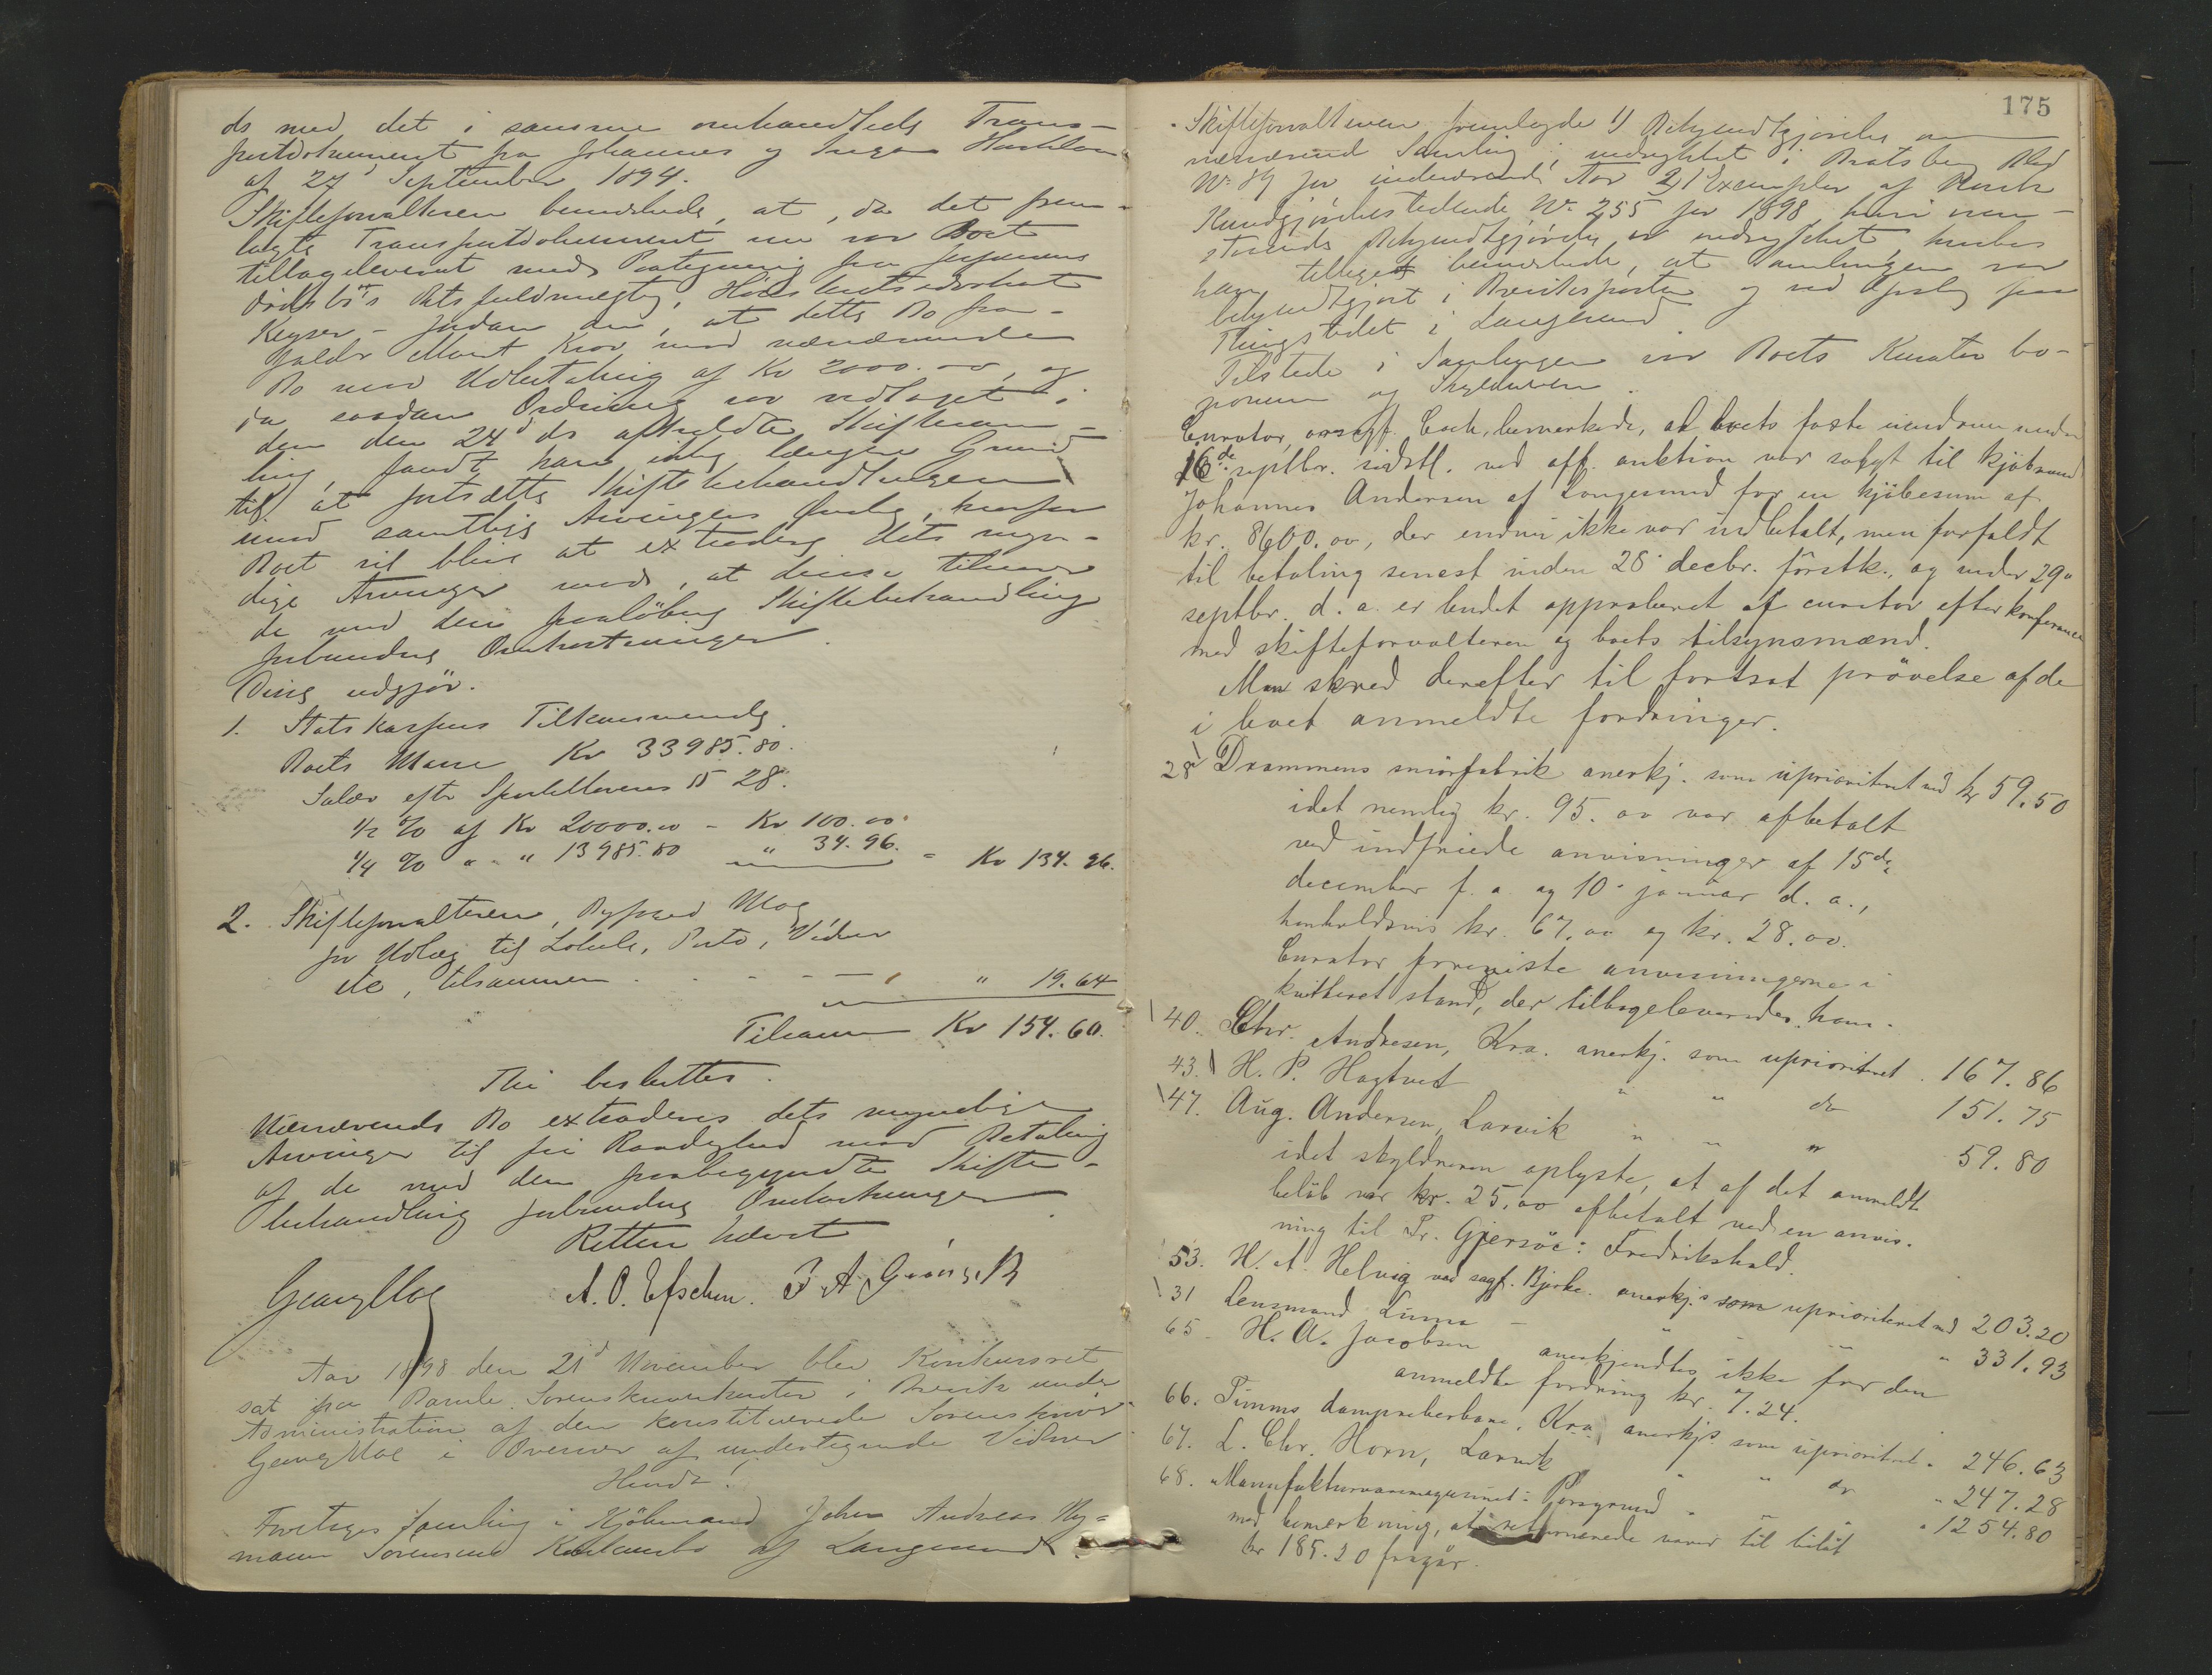 ds med det i samme omhandlede Trans-
portdokument fra Johannes og Inga
af 27 September 1894.
Skifteforvalteren bemærkede, at, da det frem-
lagte Transportdokument nu var Boet
tilbageleveret med Paategning fra
dødsbo's Retsfuldmægtig, Høiesteretsadvokat
Keyser - Jordan om, at dette Bo fra-
falder Krav mod nærværende
Bo mod Udbetaling af Kr 2000.00, og
da saadan Ordning var vedtaget i
den den 24d ds afholdte Skiftesam-
ling, fandt han ikke længere Grund
til at fortsætte Skiftebehandlingen
mod samtlige Arvingers , hvorfor
Boet vil blive at extradere dets myn-
dige Arvinger mod, at disse
de med den foreløbige Skiftebehandling
forbundne Omkostninger.
Disse udgjør.
1. Statskassens Tilkommende.
Boets Masse Kr 33985.80.
Salær efter Sportellovens § 28.
1/2 % af Kr 20000.00 - Kr 100.00
1/4 % " - " 13985.80 " 34.96. = Kr 134.96.
2. Skifteforvalteren, Byfoged Moe
for Udlæg til Lokale, Porto, Vidner
etc, tilsammen - - - - " 19.64
Tilsammen Kr 154.60.
Thi besluttes.
Nærværende Bo extraderes dets myndige
Arvinger til fri Raadighed mod Betaling
af de med den paabegyndte Skifte-
behandling forbundne Omkostninger.
Retten hævet
Georg Moe A. O. Efschen.
Aar 1898 den 21d November blev Konkursret
sat paa Bamle Sorenskriverkontor i Brevik under
Administration af den konstituerede Sorenskriver
Georg Moe i Overvær af undertegnede Vidner
Hvoda!
Foretages Samling i Kjøbmand Johan Andreas Ny-
mann Sørensens Konkursbo af Langesund
175
Skifteforvalteren fremlagde 1) Bekjendtgjørelse om
nærværende Samling, indrykket i Bratsberg Blad
No 89 for indeværende Aar 2) 1 Exemplar af Norsk
Kundgjørelsestidende No 255 for 1898 hvori oven-
staaende Bekjendtgjørelse er indrykket, hvorhos
han tillige bemærkede, at Samlingen var
bekjendtgjort i Breviksposten og ved Opslag paa
Thingstedet i Langesund.
Tilstede i Samlingen var Boets Kurator bo-
norum og Skyldneren.
Curator, overrsagf. Coch, bemærkede, at boets faste eiendom under
16de septbr. sidstl. ved off. auktion var solgt til kjøbmand
Johannes Andersen af Langesund for en kjøbesum af
kr. 8600.00, der endnu ikke var indbetalt, men forfaldt
til betaling senest inden 28de decbr. førstk., og under 29de
septbr. d. a. er budet approberet af curator efter konference
med skifteforvalteren og boets tilsynsmænd.
Man skred derefter til fortsat prøvelse af de
i boet anmeldte fordringer.
28 Drammens smørfabrik anerkj. som uprioriteret med kr 59.50
idet nemlig kr. 95.00 var afbetalt
ved indfriede anvisninger af 15de
december f. a. og 10de januar d. a.,
henholdsvis kr. 67.00 og kr. 28.00.
Curator foreviste anvisningerne i
kvitteret stand, der tilbageleveredes ham.
40. Chr. Andresen, Kra. anerkj. som uprioriteret . 167.86
43. H. P. Hagtvet " " do 151.75
47. Aug. Andersen, Larvik " " " 59.80
idet skyldneren oplyste, at af det anmeldte
beløb var kr. 25.00 afbetalt ved en anvis-
ning til Pr. Gjersøe: Fredrikshald.
53. H. A. Helvig ved sagf. Bjerke. anerkj.s som uprioriteret med 203.20
31 Lensmand Linna - " " " 331.93
65 H. A. Jacobsen anerkjendtes ikke for den
anmeldte fordring kr. 7.24.
66. Timms dampreberbane, Kra. anerkj.s som uprioriteret " 246.63
67. L. Chr. Horn, Larvik " " do " 247.28
68. Manufakturvaremagasinet: Porsgrund - " " " 1254.80
med bemærkning, at returnerede varer til beløb
kr 185.20 fragår.